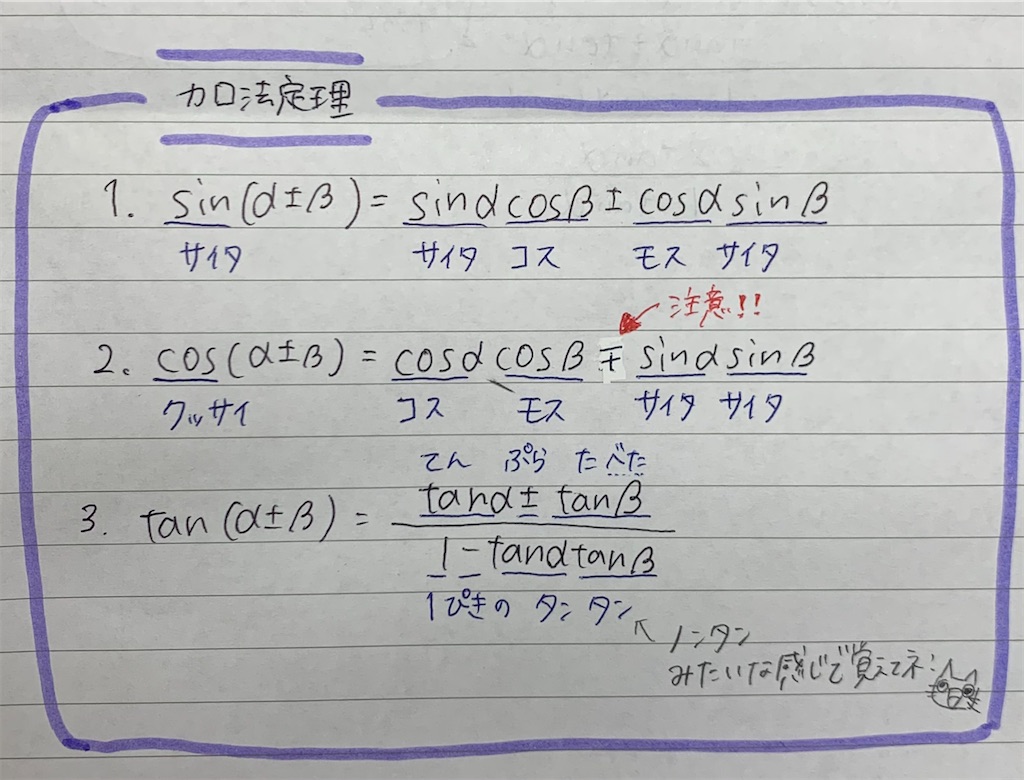 加法定理
1. sin(α±β) = sinα cosβ ± cosα sinβ
サイタ サイタ コス モス サイタ
注意!!
2. cos(α±β) = cosα cosβ ∓ sinα sinβ
クッサイ コス モス サイタ サイタ
てん ぷら たべた
3. tan(α±β) = tanα ± tanβ
1 − tanα tanβ
1ぴきの タン タン
ノンタン
みたいな感じで覚えてネ!